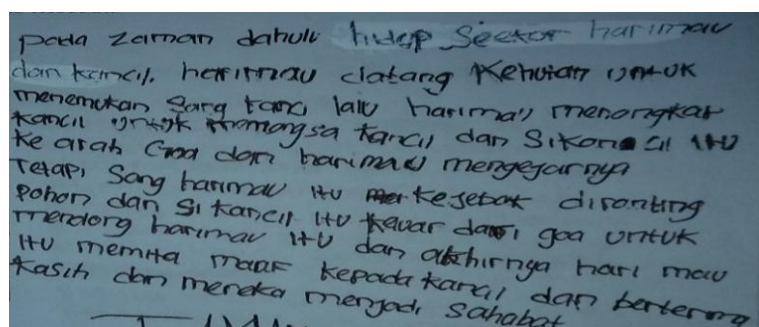 pada zaman dahulu hidup Seekor harimau
dan kancil. harimau datang Kehutan untuk
menemukan Sang kancil lalu harimau menangkap
kancil untuk memangsa kancil dan Sikancil itu
ke arah Goa dan harimau mengejarnya
Tetapi Sang harimau itu kejebak diranting
Pohon dan Si kancil itu keluar dari goa untuk
menolong harimau itu dan akhirnya hari mau
itu memita maaf kepada kancil dan berterima
kasih dan mereka menjadi sahabat